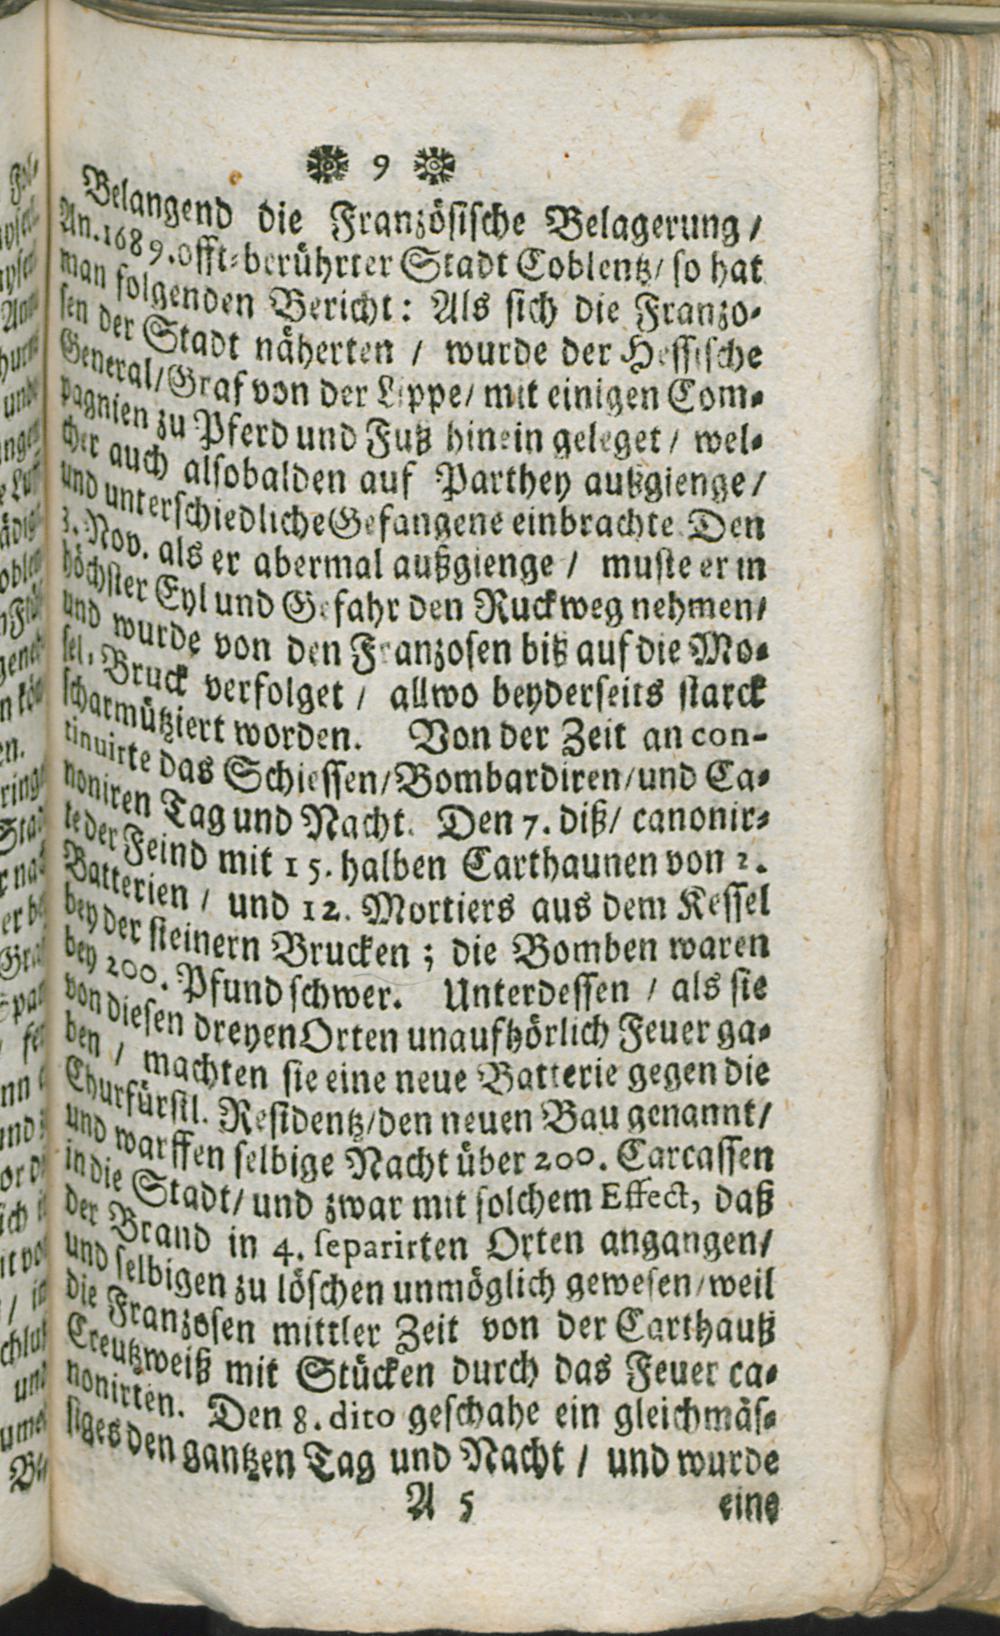 9
Belangend die Französische Belagerung /
An. 1689. offt-berührter Stadt Coblentz / so hat
man folgenden Bericht: Als sich die Franzo-
sen der Stadt näherten / wurde der Hessische
General / Graf von der Lippe / mit einigen Com-
pagnien zu Pferd und Fuß hinein geleget / wel-
cher auch alsobalden auf Parthey außgienge /
und unterschiedliche Gefangene einbrachte. Den
3. Nov. als er abermal außgienge / muste er in
höchster Eyl und Gefahr den Ruckweg nehmen /
und wurde von den Franzosen biß auf die Mo-
sel-Bruck verfolget / allwo beyderseits starck
scharmütziert worden. Von der Zeit an con-
tinuirte das Schiessen / Bombardiren / und Ca-
noniren Tag und Nacht. Den 7. diß / canonir-
te der Feind mit 15. halben Carthaunen von 2.
Batterien / und 12. Mortiers aus dem Kessel
bey der steinern Brucken ; die Bomben waren
bey 200. Pfund schwer. Unterdessen / als sie
von diesen dreyen Orten unaufhörlich Feuer ga-
ben / machten sie eine neue Batterie gegen die
Churfürstl. Residentz / den neuen Bau genannt /
und warffen selbige Nacht über 200. Carcassen
in die Stadt / und zwar mit solchem Effect, daß
der Brand in 4. separirten Orten angangen /
und selbigen zu löschen unmöglich gewesen / weil
die Franzosen mittler Zeit von der Carthauß
Creutzweiß mit Stücken durch das Feuer ca-
nonirten. Den 8. dito geschahe ein gleichmäs-
siges den gantzen Tag und Nacht / und wurde
A 5 eine